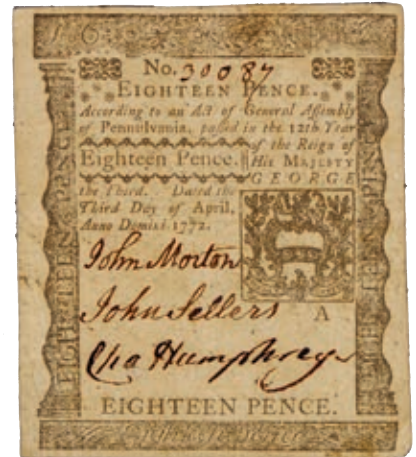 No. 30087
EIGHTEEN PENCE.
According to an Act of General Assembly
of Pennsylvania, passed in the 12th Year
of the Reign of
Eighteen Pence. His MAJESTY
GEORGE
the Third. Dated the
Third Day of April,
Anno Domini 1772.
John Morton
John Sellers
A
Cha Humphreys
EIGHTEEN PENCE.
EIGHTEEN PENCE
EIGHTEEN PENCE